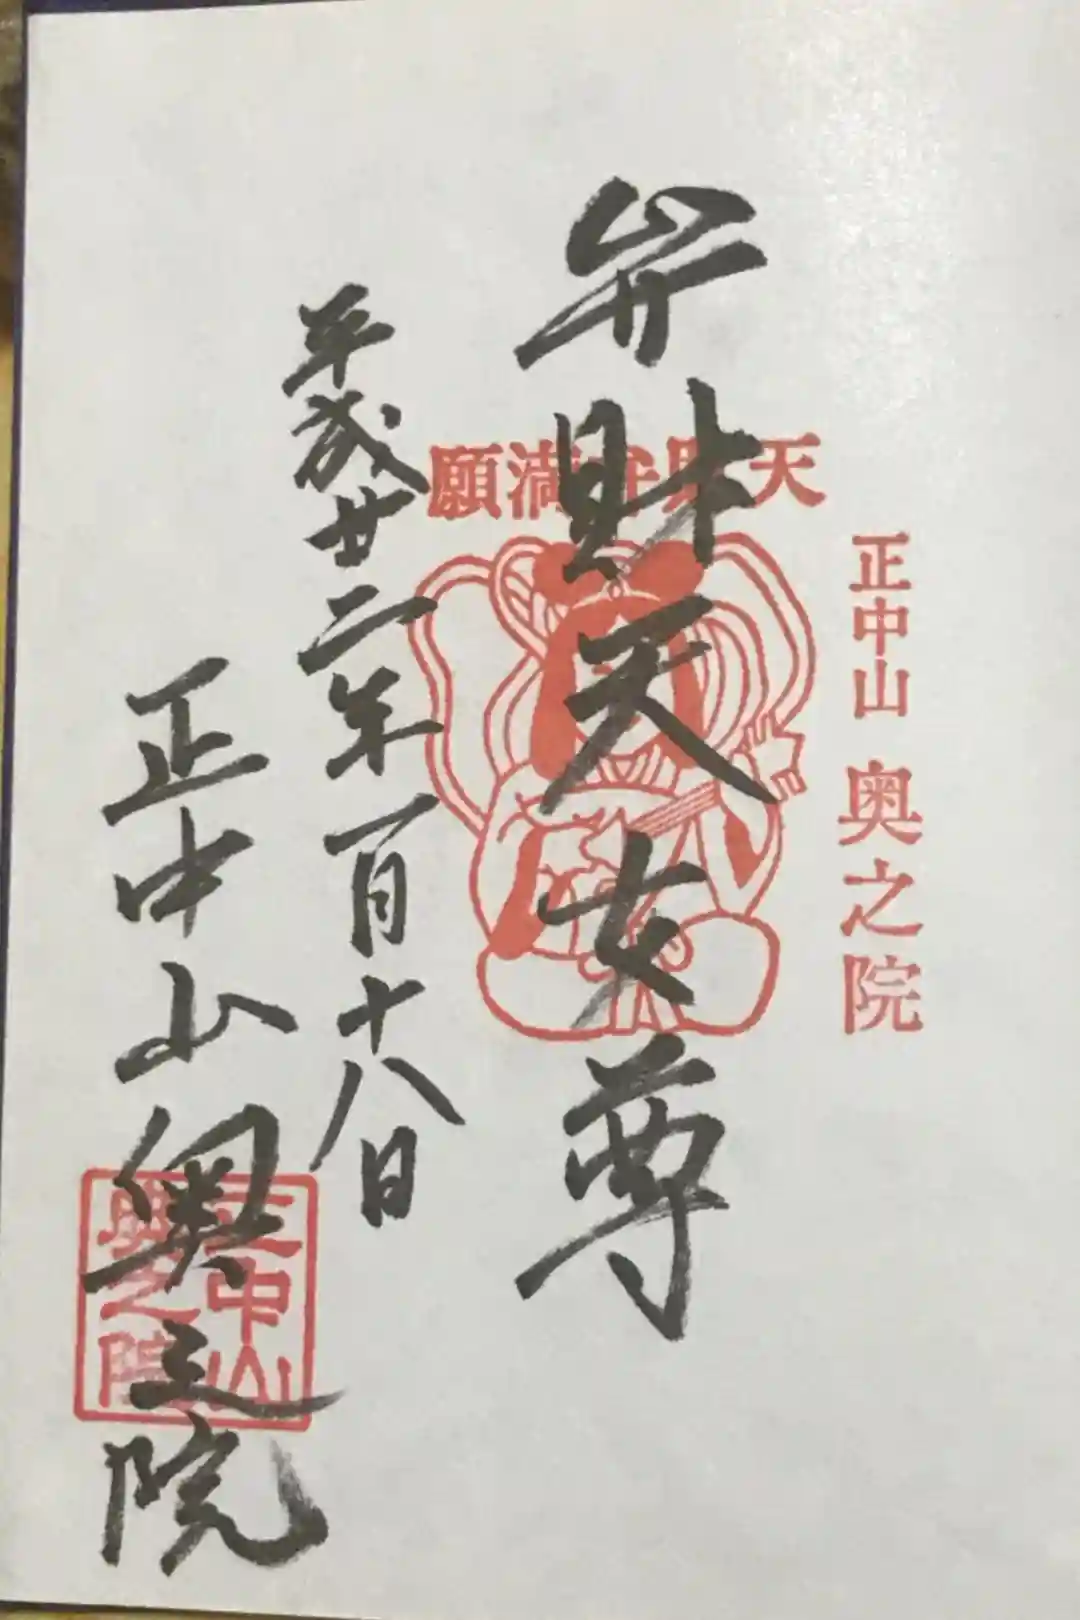 正中山 奥之院
願満弁財天
弁財天女尊
平成廿二年一月十八日
正中山奥之院
正中山
奥之院